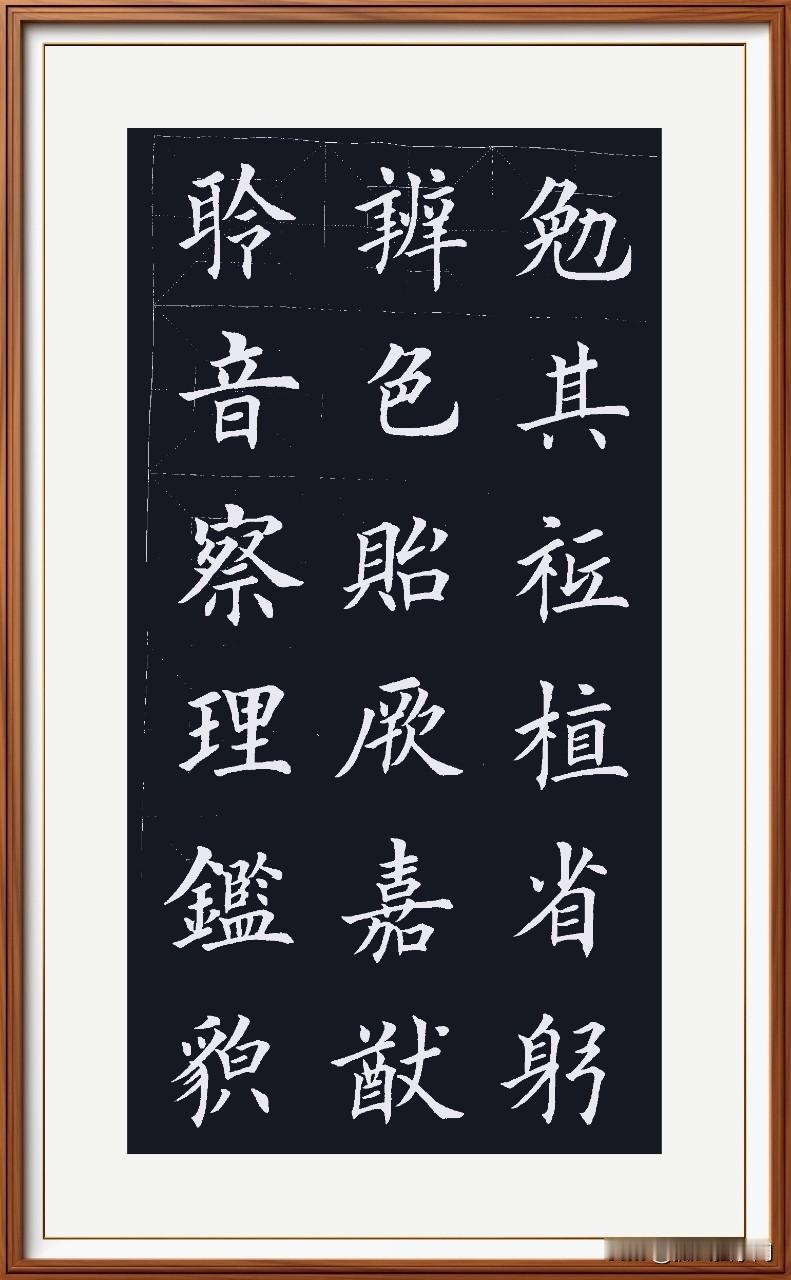 聆音察理鑑貌
辨色貽厥嘉猷
勉其祗植省躬